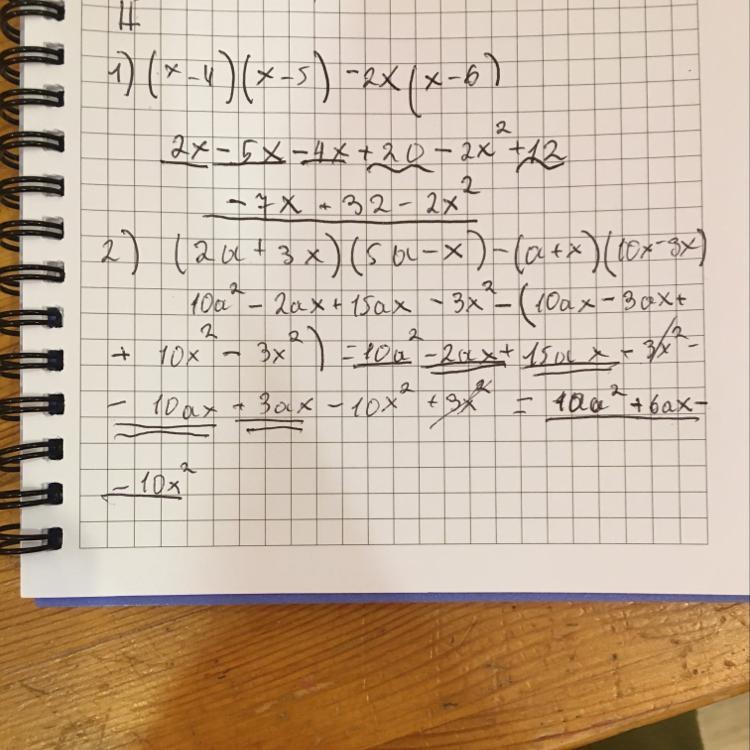 1) (x-4)(x-5) -2x(x-6)
2x - 5x - 4x + 20 - 2x² + 12
-7x + 32 - 2x²
2) (2a + 3x)(5a - x) - (a + x)(10x - 3x)
10a² - 2ax + 15ax - 3x² - (10ax - 3ax +
+ 10x² - 3x²) = 10a² - 2ax + 15ax - 3x² -
- 10ax + 3ax - 10x² + 3x² = 10a² + 6ax -
- 10x²